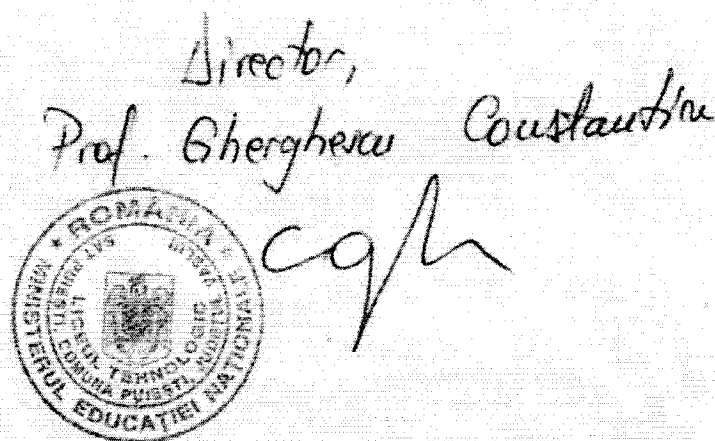 Director,
Prof. Gherghescu Constantin
cgh
* ROMÂNIA *
MINISTERUL EDUCAȚIEI NAȚIONALE
LICEUL TEHNOLOGIC
SAT PUIEȘTI, COMUNA PUIEȘTI, JUDEȚUL VASLUI